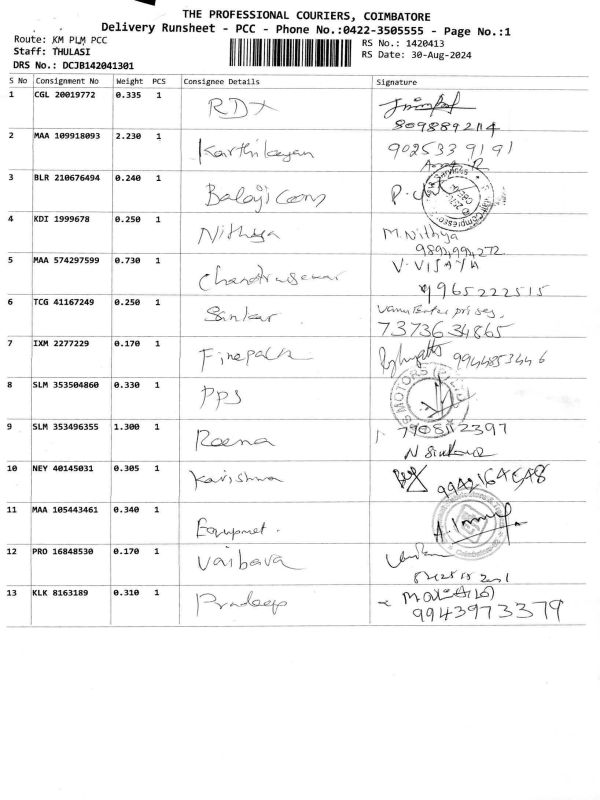 THE PROFESSIONAL COURIERS, COIMBATORE
Delivery Runsheet - PCC - Phone No.:0422-3505555 - Page No.:1
Route: KM PLM PCC
RS No.: 1420413
Staff: THULASI
RS Date: 30-Aug-2024
DRS No.: DCJB142041301
S No Consignment No Weight PCS Consignee Details Signature
1 CGL 20019772 0.335 1 RDX
8098892114
2 MAA 109918093 2.230 1 Karthikeyan 9025339191
3 BLR 210676494 0.240 1 Balaji Cons
4 KDI 1999678 0.250 1 Nithya M. Nithya
9894994272
5 MAA 574297599 0.730 1 Chandrasekar V. VIJAYA
9965222515
6 TCG 41167249 0.250 1 Sankar
7373634865
7 IXM 2277229 0.170 1 Finepack 9944853446
8 SLM 353504860 0.330 1 PPS
MOTORS
9 SLM 353496355 1.300 1 Reena 7708512397
10 NEY 40145031 0.305 1 Karishma
11 MAA 105443461 0.340 1 Equipmet.
12 PRO 16848530 0.170 1 Vaibava
13 KLK 8163189 0.310 1 Pradeep
9943973379